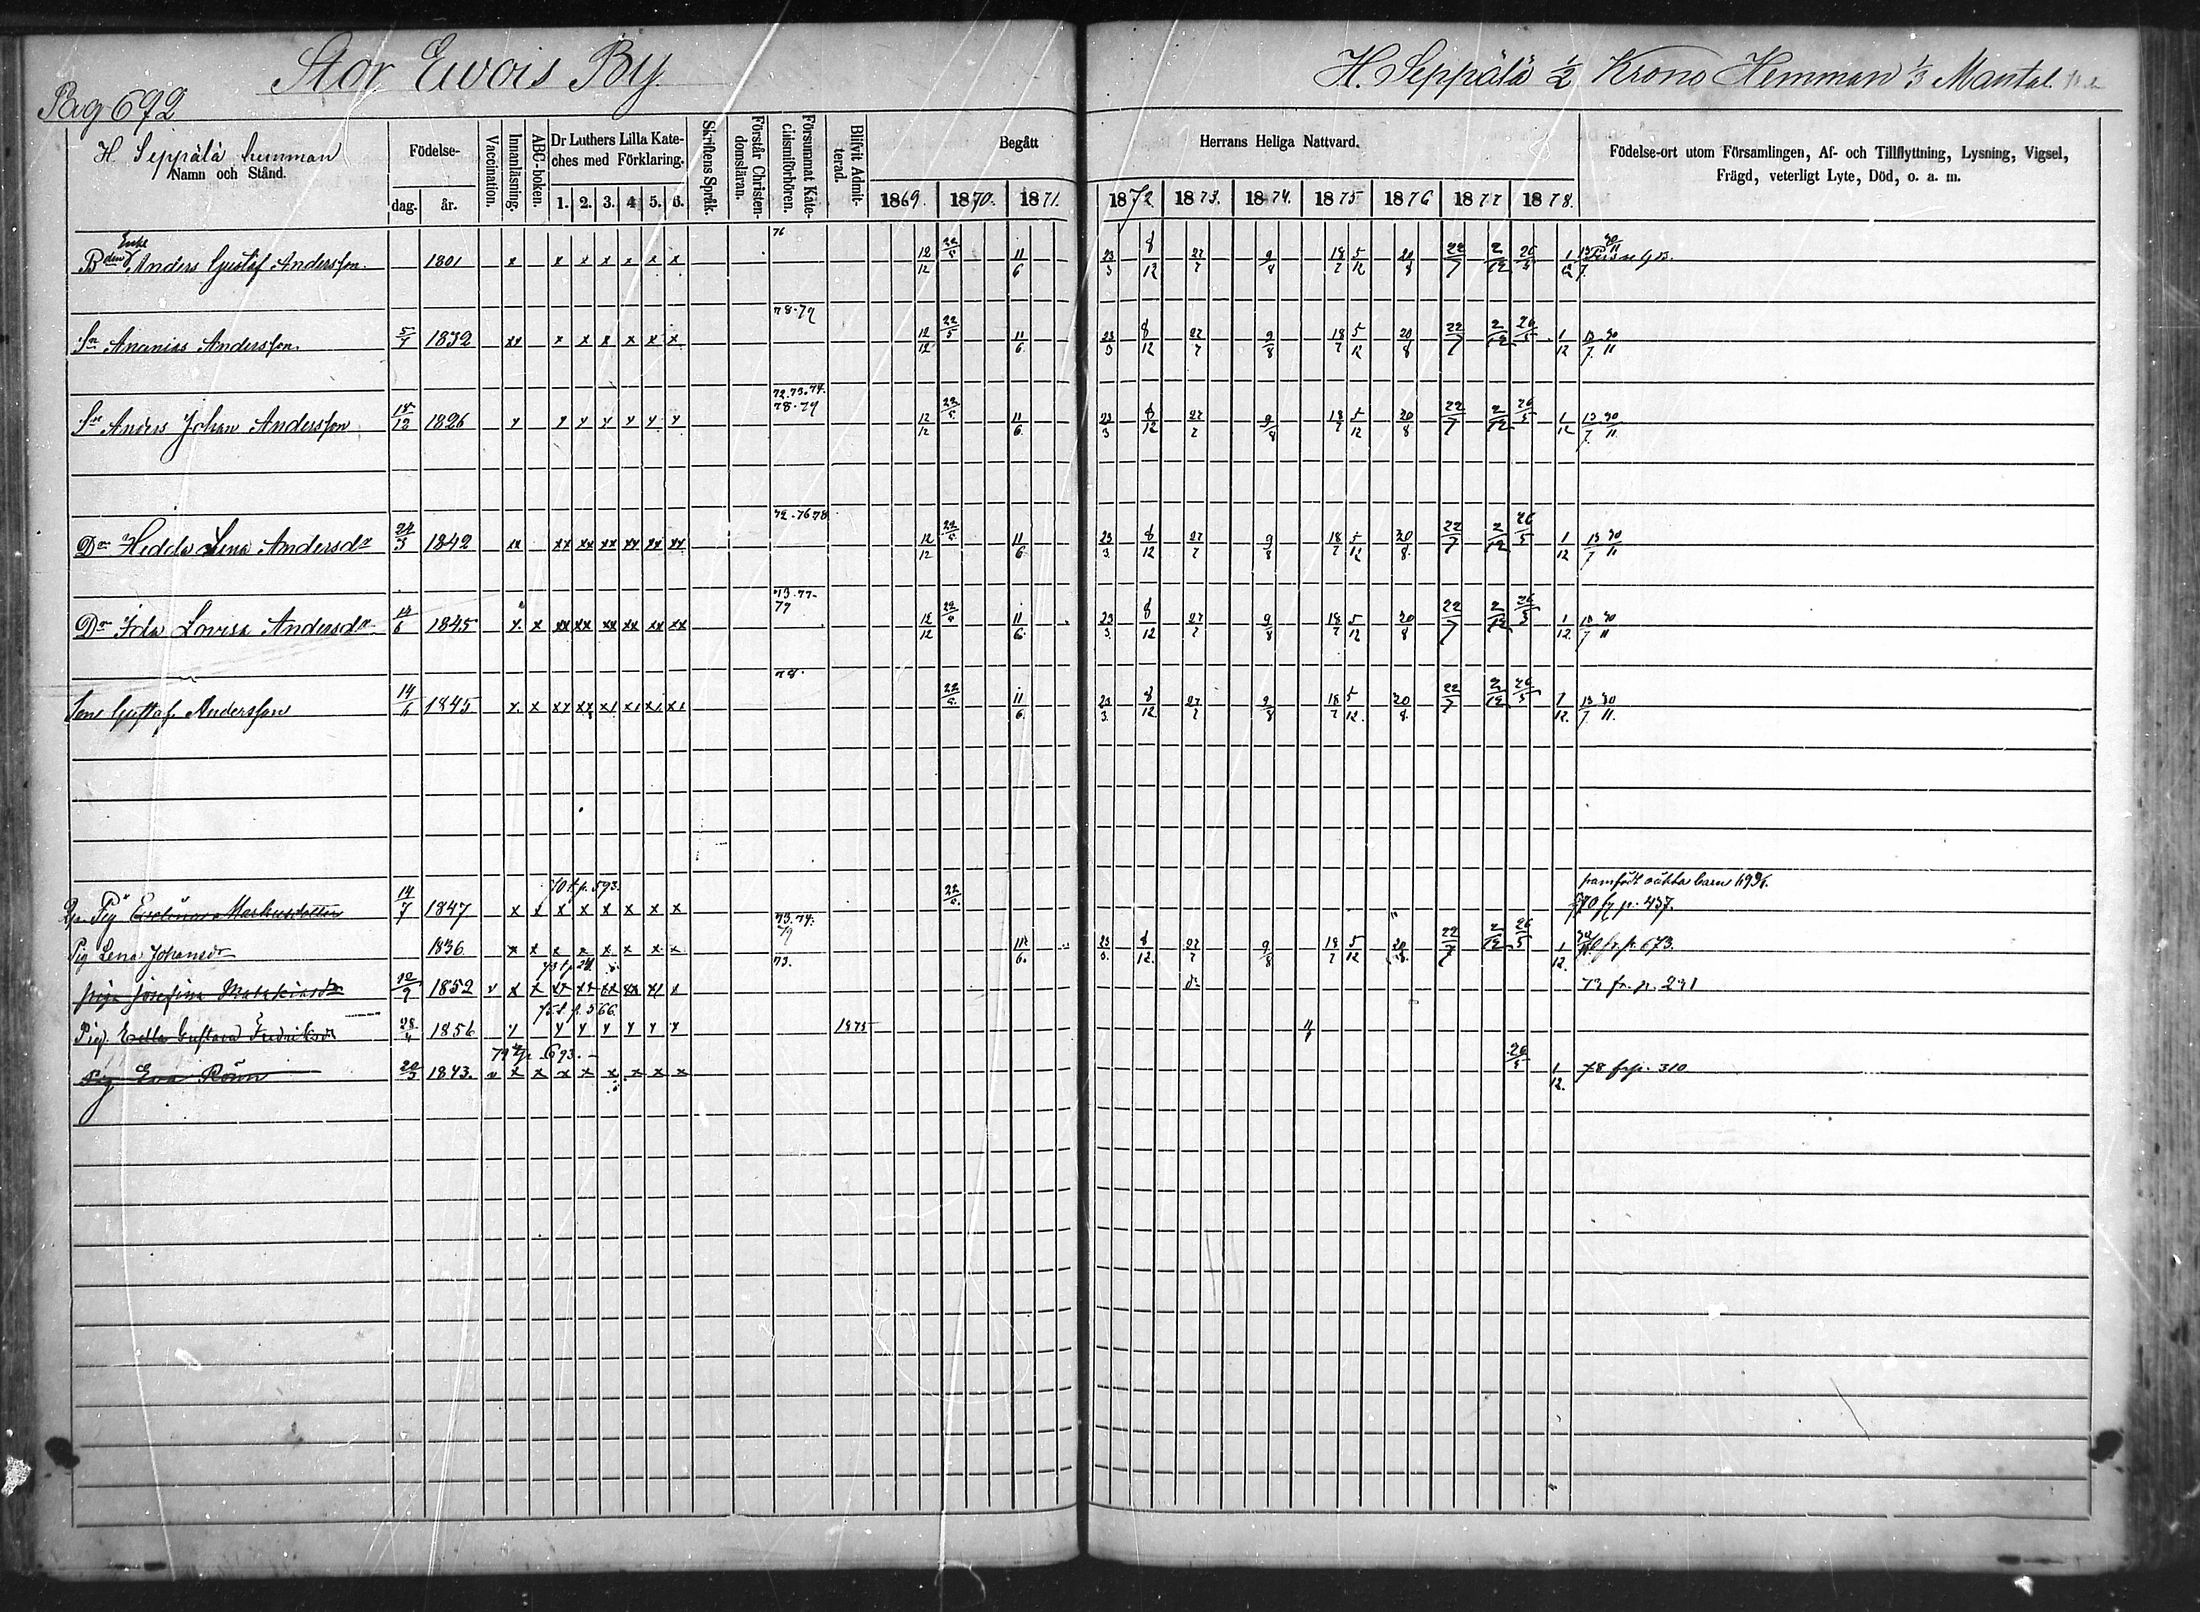 Stor Ewois By.
H. Seppälä 1/2 Krono Hemman 1/3 Mantal.
Pag 692
H. Seppälä hemman
Namn och Stånd.
Födelse-
dag.
år.
Vaccination.
Innanläsning.
ABC-boken.
Dr Luthers Lilla Kate-
ches med Förklaring.
1. 2. 3. 4 5. 6.
Skriftens Språk.
Förstår Christen-
domsläran.
Försummat Kate-
chismiförhören.
Blifvit Admit-
terad.
Begått Herrans Heliga Nattvard.
1869. 1870. 1871. 1872 1873. 1874. 1875 1876 1877 1878.
Födelse-ort utom Församlingen, Af- och Tillflyttning, Lysning, Vigsel,
Frägd, veterligt Lyte, Död, o. a. m.
Enke
76
Anders Gustaf Andersson. 1801 x x x x x x x 12/12 22/5 11/6 23/3 8/12 27/7 9/8 18/7 5/12 20/8 22/7 2/12 26/5 1/12
78.79
Sn Ananias Andersson. 5/7 1832 xx x x x x x x 12/12 22/5 11/6 23/3 8/12 27/7 9/8 18/7 5/12 20/8 22/7 2/12 26/5 1/12 13/7 30/11
72.73.74.
78.79
Sn Anders Johan Andersson 18/12 1826 12/12 22/5 11/6 23/3 8/12 27/7 9/8 18/7 5/12 20/8 22/7 2/12 26/5 1/12 13/7 30/11
72.76 78
Dr Hedda Lena Andersdr 24/3 1842 xx xx xx xx xx xx xx 12/12 22/5 11/6 23/3 8/12 27/7 9/8 18/7 5/12 20/8 22/7 2/12 26/5 1/12 13/7 30/11
73.77.
79
Dr Ida Lovisa Andersdr 14/6 1845 x x xx xx xx xx xx xx 12/12 22/5 11/6 23/3 8/12 27/7 9/8 18/7 5/12 20/8 22/7 2/12 26/5 1/12 13/7 30/11
78.
Son Gustaf Andersson 14/6 1845 x x xx xx 22/5 11/6 23/3 8/12 27/7 9/8 18/7 5/12 20/8 22/7 2/12 26/5 1/12 13/7 30/11
70 t. p. 593.
framfödt oäkta barn
Pig Markusdotter 14/7 1847 x x x x x x x x 22/5 70 fr p. 437.
73.74.
79
Pig Lena Johansdr 1836. x x x x x x x x 11/6 23/3 8/12 27/7 9/8 18/7 5/12 20/8 22/7 2/12 26/5 1/12 fr p. 673.
73 t. p 24.
73.
piga Josefina 1852 v x x 72 fr. p. 291
75 t. p. 566.
Pig. Gustava Fredriksdr 1856 1875
693.
Pig Eva 20/3 1843. v x x x x x x x x 26/5 1/12 78 fr p. 310